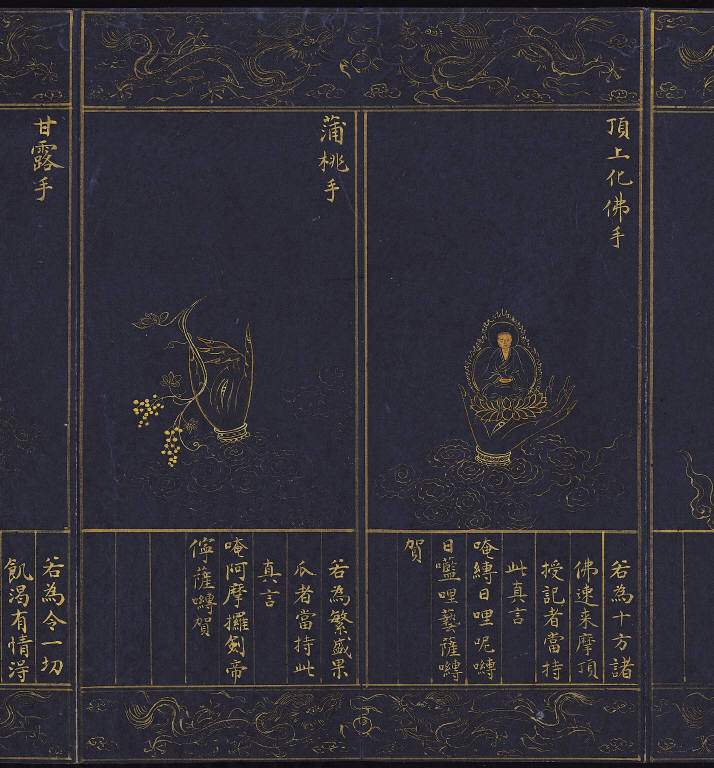 頂上化佛手
若為十方諸
佛速来摩頂
授記者當持
此真言
唵縛日哩呢嚩
日囕哩藝薩嚩
賀
蒲桃手
若為繁盛果
瓜者當持此
真言
唵阿摩攞劍帝
儜薩嚩賀
甘露手
若為令一切
飢渴有情淂